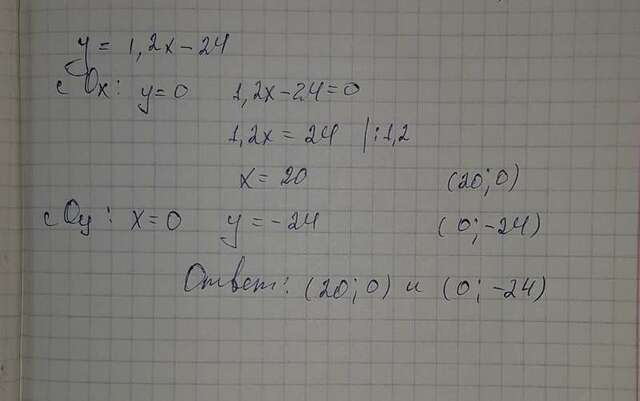 y = 1,2x - 24
с Ox: y = 0 1,2x - 24 = 0
1,2x = 24 |:1,2
x = 20 (20; 0)
с Oy: x = 0 y = -24 (0; -24)
Ответ: (20; 0) и (0; -24)